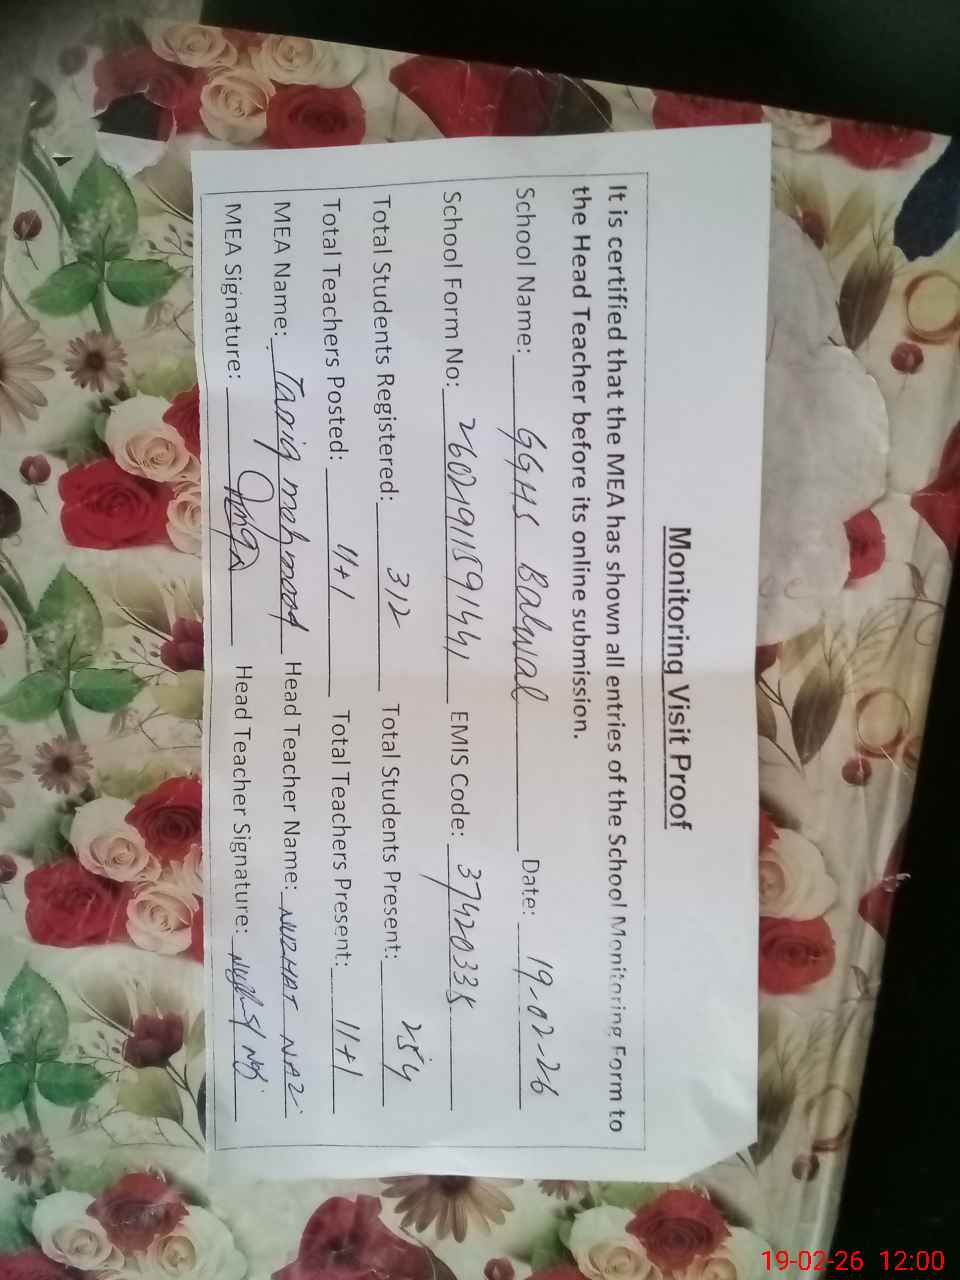 Monitoring Visit Proof
It is certified that the MEA has shown all entries of the School Monitoring Form to
the Head Teacher before its online submission.
School Name: GGHS Balwal Date: 19-02-26
School Form No: 26021911591441 EMIS Code: 37420338
Total Students Registered: 312 Total Students Present: 254
Total Teachers Posted: 11+1 Total Teachers Present: 11+1
MEA Name: Tariq mehmood Head Teacher Name: NUZHAT NAZ
MEA Signature: Head Teacher Signature:
19-02-26 12:00